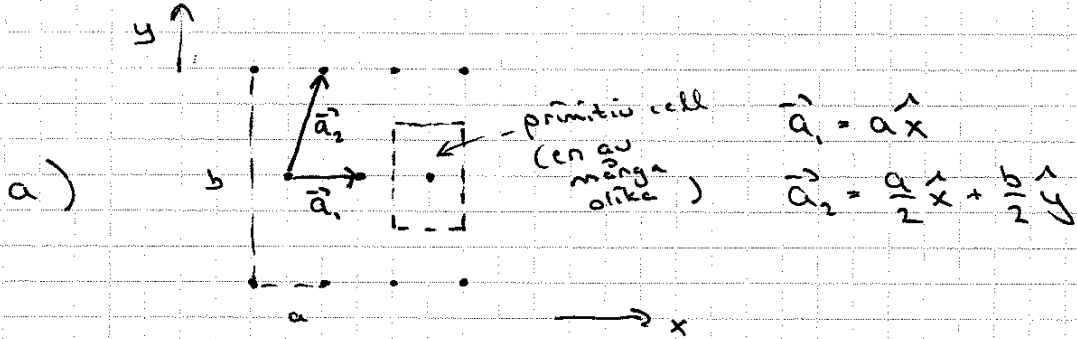 y
a)
b
a⃗₂
a⃗₁
a
x
primitiv cell
(en av
många
olika)
a⃗₁ = a x̂
a⃗₂ = a/2 x̂ + b/2 ŷ